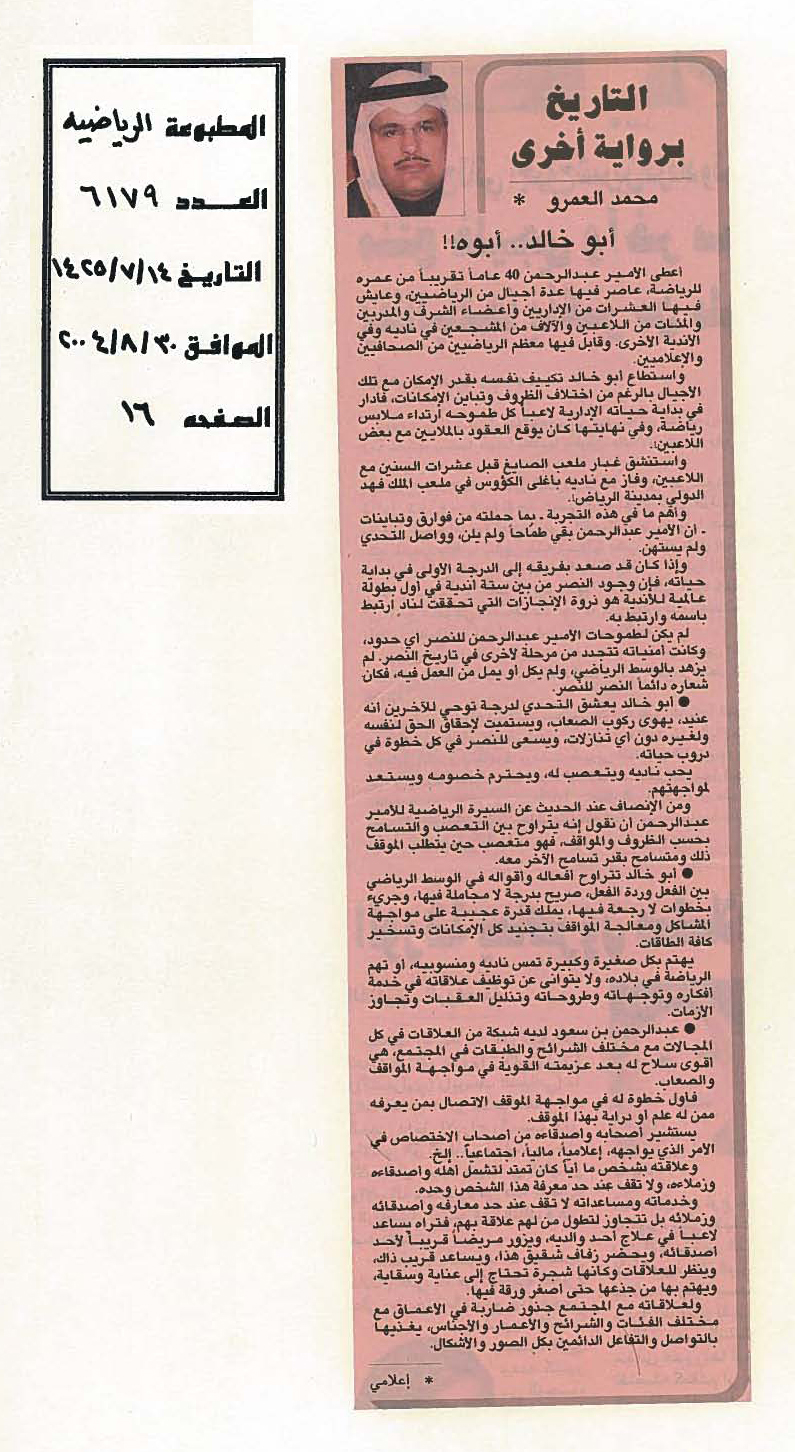 المطبوعة الرياضيه
العدد ٦١٧٩
التاريخ ١٤٢٥/٧/١٤
الموافق ٢٠٠٤/٨/٣٠
الصفحه ١٦
التاريخ
برواية أخرى
محمد العمرو *
أبو خالد.. أبوه!!
أعطى الأمير عبدالرحمن 40 عاماً تقريباً من عمره
للرياضة، عاصر فيها عدة أجيال من الرياضيين، وعايش
فيها العشرات من الإداريين وأعضاء الشرف والمدربين
والمئات من اللاعبين والآلاف من المشجعين في ناديه وفي
الأندية الأخرى. وقابل فيها معظم الرياضيين من الصحافيين
والإعلاميين.
واستطاع أبو خالد تكييف نفسه بقدر الإمكان مع تلك
الأجيال بالرغم من اختلاف الظروف وتباين الإمكانات، فأدار
في بداية حياته الإدارية لاعباً كل طموحه أرتداء ملابس
رياضة، وفي نهايتها كان يوقع العقود بالملايين مع بعض
اللاعبين!.
واستنشق غبار ملعب الصايغ قبل عشرات السنين مع
اللاعبين، وفاز مع ناديه بأغلى الكؤوس في ملعب الملك فهد
الدولي بمدينة الرياض!.
وأهم ما في هذه التجربة ـ بما حملته من فوارق وتباينات
ـ أن الأمير عبدالرحمن بقي طمّاحاً ولم يلن، وواصل التحدي
ولم يستهن.
وإذا كان قد صعد بفريقه إلى الدرجة الأولى في بداية
حياته، فإن وجود النصر من بين ستة أندية في أول بطولة
عالمية للأندية هو ذروة الإنجازات التي تحققت لنادٍ أرتبط
باسمه وارتبط به.
لم يكن لطموحات الأمير عبدالرحمن للنصر أي حدود،
وكانت أمنياته تتجدد من مرحلة لأخرى في تاريخ النصر. لم
يزهد بالوسط الرياضي، ولم يكل أو يمل من العمل فيه، فكان
شعاره دائماً النصر للنصر.
● أبو خالد يعشق التحدي لدرجة توحي للآخرين أنه
عنيد، يهوى ركوب الصعاب، ويستميت لإحقاق الحق لنفسه
ولغيره دون أي تنازلات، ويسعى للنصر في كل خطوة في
دروب حياته.
يحب ناديه ويتعصب له، ويحترم خصومه ويستعد
لمواجهتهم.
ومن الإنصاف عند الحديث عن السيرة الرياضية للأمير
عبدالرحمن أن نقول إنه يتراوح بين التعصب والتسامح
بحسب الظروف والمواقف، فهو متعصب حين يتطلب الموقف
ذلك ومتسامح بقدر تسامح الآخر معه.
● أبو خالد تتراوح أفعاله وأقواله في الوسط الرياضي
بين الفعل وردة الفعل، صريح بدرجة لا مجاملة فيها، وجريء
بخطوات لا رجعة فيها، يملك قدرة عجيبة على مواجهة
المشاكل ومعالجة المواقف بتجنيد كل الإمكانات وتسخير
كافة الطاقات.
يهتم بكل صغيرة وكبيرة تمس ناديه ومنسوبيه، أو تهم
الرياضة في بلاده، ولا يتوانى عن توظيف علاقاته في خدمة
أفكاره وتوجهاته وطروحاته وتذليل العقبات وتجاوز
الأزمات.
● عبدالرحمن بن سعود لديه شبكة من العلاقات في كل
المجالات مع مختلف الشرائح والطبقات في المجتمع، هي
أقوى سلاح له بعد عزيمته القوية في مواجهة المواقف
والصعاب.
فأول خطوة له في مواجهة الموقف الاتصال بمن يعرفه
ممن له علم أو دراية بهذا الموقف.
يستشير أصحابه وأصدقاءه من أصحاب الاختصاص في
الأمر الذي يواجهه، إعلامياً، مالياً، اجتماعياً.. إلخ.
وعلاقته بشخص ما أياً كان تمتد لتشمل أهله وأصدقاءه
وزملاءه، ولا تقف عند حد معرفة هذا الشخص وحده.
وخدماته ومساعداته لا تقف عند حد معارفه وأصدقائه
وزملائه بل تتجاوز لتطول من لهم علاقة بهم، فتراه يساعد
لاعباً في علاج أحد والديه، ويزور مريضاً قريباً لأحد
أصدقائه، ويحضر زفاف شقيق هذا، ويساعد قريب ذاك،
وينظر للعلاقات وكأنها شجرة تحتاج إلى عناية وسقاية،
ويهتم بها من جذعها حتى أصغر ورقة فيها.
ولعلاقاته مع المجتمع جذور ضاربة في الأعماق مع
مختلف الفئات والشرائح والأعمار والأجناس، يغذيها
بالتواصل والتفاعل الدائمين بكل الصور والأشكال.
* إعلامي